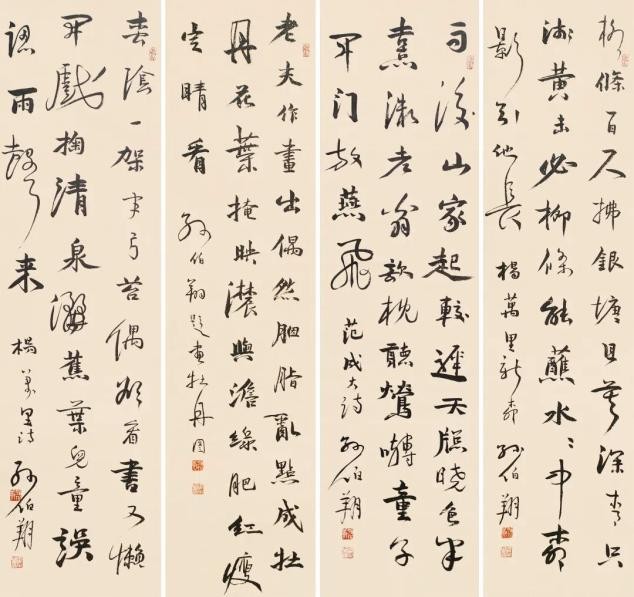 柳條百尺拂銀塘且莫深青只
淺黃未必柳條能蘸水水中柳
影引他長 楊萬里新柳 孫伯翔
雨後山家起較遲天牕曉色半
熹微老翁欹枕聽鶯囀童子
開門放燕飛 范成大詩 孫伯翔
老夫作畫出偶然胭脂亂點成牡
丹花葉掩映濃與澹綠肥紅瘦
宜晴看 孫伯翔題畫牡丹圖
松陰一架半弓苔偶欲看書又懶
開戲掬清泉灑蕉葉兒童誤
認雨聲來 楊萬里詩 孫伯翔